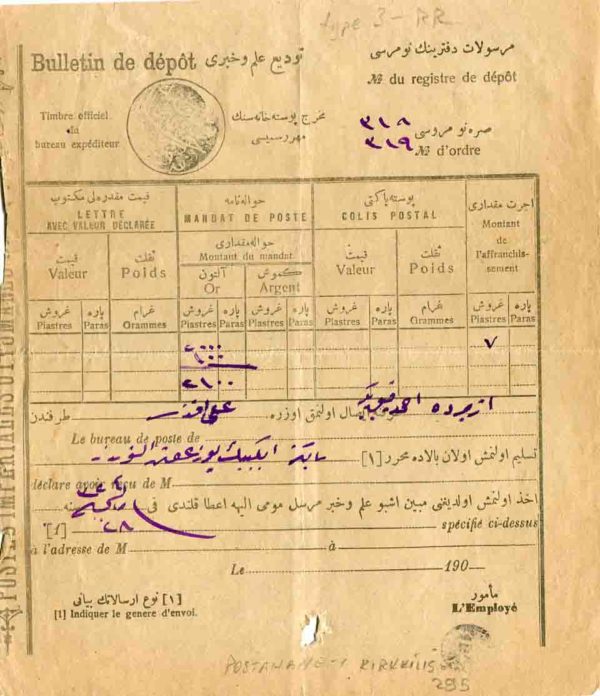 type 3 - RR
Bulletin de dépôt توديع علم و خبرى
مرسولات دفترينك نومروسى
№ du registre de dépôt
Timbre officiel
du
bureau expéditeur
مخرج پوسته خانه سنك
مهر رسميسى
صره نومروسى ٣١٨
٣١٩
№ d'ordre
قيمت مقدره لى مكتوب
LETTRE
AVEC VALEUR DÉCLARÉE
حواله نامه
MANDAT DE POSTE
پوسته پاكتى
COLIS POSTAL
اجرت مقدارى
Montant
de
l'affranchis-
sement
حواله مقدارى
Montant du mandat
قيمت
Valeur
ثقلت
Poids
آلتون
Or
كموش
Argent
قيمت
Valeur
ثقلت
Poids
غروش پاره غرام غروش پاره غروش پاره غروش پاره غرام غروش پاره
Piastres Paras Grammes Piastres Paras Piastres Paras Piastres Paras Grammes Piastres Paras
٢٠٠٠ ٧
١٠٠
٢١٠٠
ايصال اولنمق اوزره على افندى طرفندن
Le bureau de poste de
تسليم اولنمش اولان بالاده محرر [١]
déclare avoir reçu de M
اخذ اولنمش اولديغنى مبين اشبو علم و خبر مرسل مومى اليه اعطا قلندى فى سنه
٢٨
[1] spécifié ci-dessus
à l'adresse de M à
Le 190
[١] نوع ارسالاتك بيانى
[1] Indiquer le genere d'envoi.
مأمور
L'Employé
POSTAHANE-1 KIRKKILIS
295
POSTES IMPÉRIALES OTTOMANES